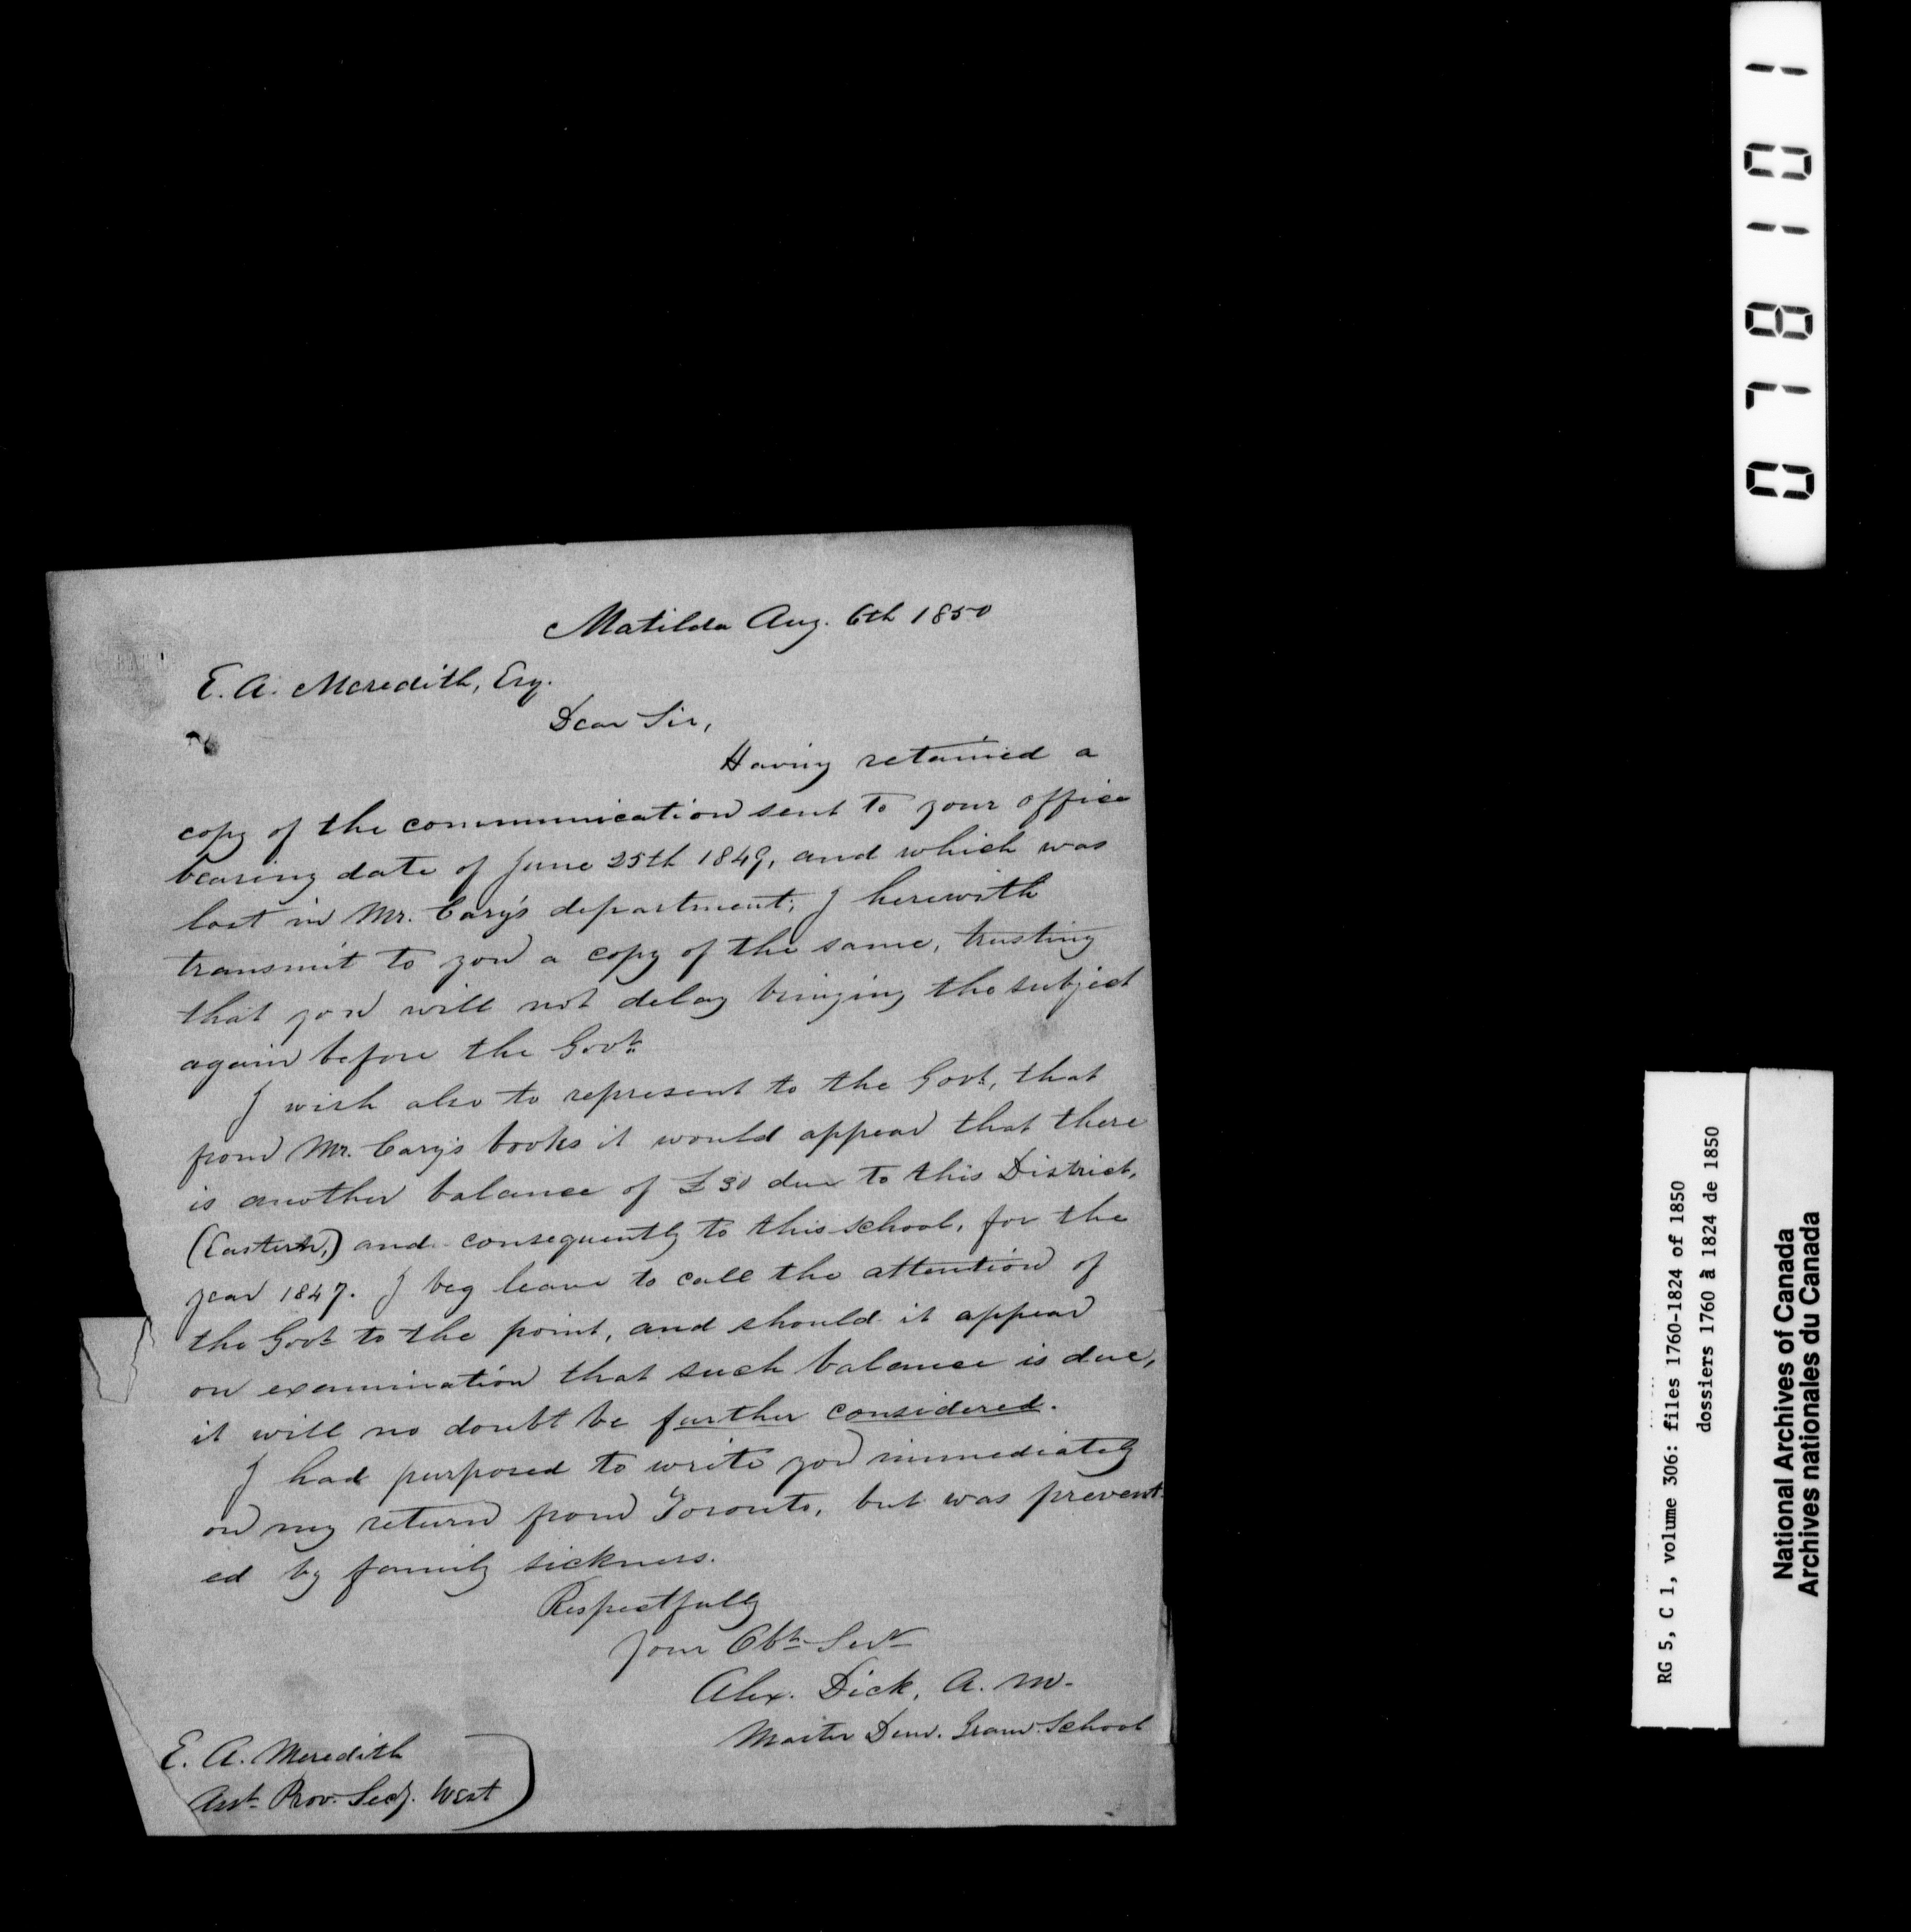 Matilda Aug. 6th 1850
E. A. Meredith, Esq.
Dear Sir,
Having retained a
copy of the communication sent to your office
bearing date of June 25th 1849, and which was
lost in Mr. Cary's department; I herewith
transmit to you a copy of the same, trusting
that you will not delay bringing the subject
again before the Govt.
I wish also to represent to the Govt, that
from Mr. Cary's books it would appear that there
is another balance of £30 due to this District,
(Eastern,) and consequently to this school, for the
year 1847. I beg leave to call the attention of
the Govt to the point, and should it appear
on examination that such balance is due,
it will no doubt be further considered.
I had purposed to write you immediately
on my return from Toronto, but was prevent-
ed by family sickness.
Respectfully
Your Obt. Servt
Alex. Dick, A. M.
Master Dun. Gram. School
E. A. Meredith
Asst. Prov. Secy. West
078101
RG 5, C 1, volume 306: files 1760-1824 of 1850
dossiers 1760 à 1824 de 1850
National Archives of Canada
Archives nationales du Canada